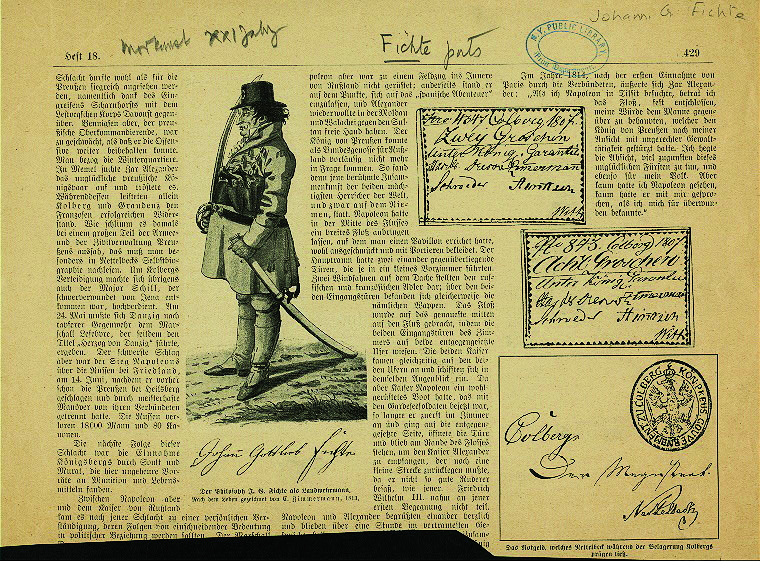 Johann G Fichte
Fichte ports
N.Y. PUBLIC LIBRARY
Heft 18.
429
Schlacht durfte wohl als für die
Preußen siegreich angesehen wer-
den, namentlich dank des Ein-
greifens Scharnhorsts mit dem
Lestocqschen Korps Davout gegen-
über. Bennigsen aber, der preußi-
sche Oberkommandierende, war
zu geschwächt, als daß er die Offen-
sive weiter beibehalten konnte.
Man bezog die Winterquartiere.
In Memel suchte Zar Alexander
das unglückliche preußische Kö-
nigspaar auf und tröstete es.
Währenddessen leisteten allein
Kolberg und Graudenz den
Franzosen erfolgreichen Wider-
stand. Wie schlimm es damals
bei einem großen Teil der Armee
und der Zivilverwaltung Preu-
ßens aussah, das muß man be-
sonders in Nettelbecks Selbstbio-
graphie nachlesen. Um Kolbergs
Verteidigung machte sich übrigens
auch der Major Schill, der
schwerverwundet von Jena ent-
kommen war, hochverdient. Am
24. Mai mußte sich Danzig nach
tapferer Gegenwehr dem Mar-
schall Lefebvre, der seitdem den
Titel „Herzog von Danzig" führte,
ergeben. Der schwerste Schlag
aber war der Sieg Napoleons
über die Russen bei Friedland,
am 14. Juni, nachdem er vorher
schon die Preußen bei Heilsberg
geschlagen und durch meisterhafte
Manöver von ihren Verbündeten
getrennt hatte. Die Russen ver-
loren 18000 Mann und 80 Ka-
nonen.
Die nächste Folge dieser
Schlacht war die Einnahme
Königsbergs durch Soult und
Murat, die hier ungeheure Vor-
räte an Munition und Lebens-
mitteln fanden.
Zwischen Napoleon aber
und dem Kaiser von Rußland
kam es nach jener Schlacht zu einer persönlichen Ver-
ständigung, deren Folgen von einschneidender Bedeutung
in politischer Beziehung werden sollten. Der Marschall
Johann Gottlieb Fichte
Der Philosoph J. G. Fichte als Landwehrmann.
Nach dem Leben gezeichnet von C. Zimmermann, 1813.
poleon aber war zu einem Feldzug ins Innere
von Rußland nicht gerüstet; anderseits stand er
auf dem Punkte, sich auf das „spanische Abenteuer"
einzulassen, und Alexander
wieder wollte in der Moldau
und Walachei gegen den Sul-
tan freie Hand haben. Der
König von Preußen konnte
als Bundesgenosse für Ruß-
land vorläufig nicht mehr
in Frage kommen. So fand
denn jene berühmte Zusam-
menkunft der beiden mäch-
tigsten Herrscher der Welt,
und zwar auf dem Nie-
men, statt. Napoleon hatte
in der Mitte des Flusses
ein breites Floß anbringen
lassen, auf dem man einen Pavillon errichtet hatte,
wohl ausgeschmückt mit Portieren bekleidet. Der
Hauptraum hatte zwei einander gegenüberliegende
Türen, die je in ein kleines Vorzimmer führten.
Zwei Windfahnen auf dem Dache stellten den russi-
schen und französischen Adler dar; über den bei-
den Eingangstüren befanden sich gleicherweise die
nämlichen Wappen. Das Floß
wurde auf das genaueste mitten
auf den Fluß gebracht, indem die
beiden Eingangstüren des Zim-
mers auf beide entgegengesetzte
Ufer wiesen. Die beiden Kaiser
kamen gleichzeitig auf den bei-
den Ufern an und schifften sich in
demselben Augenblick ein. Da
aber Kaiser Napoleon ein wohl-
gerüstetes Boot hatte, das mit
den Gardeseesoldaten besetzt war,
so langte er zuerst im Zimmer
an und ging auf die entgegen-
gesetzte Seite, öffnete die Türe
und blieb am Rande des Floßes
stehen, um den Kaiser Alexander
zu empfangen, der noch eine
kleine Strecke zurücklegen mußte,
da er nicht so gute Ruderer
besaß, wie jener. Friedrich
Wilhelm III. nahm an jener
ersten Begegnung nicht teil.
Napoleon und Alexander begrüßten einander herzlich
und blieben über eine Stunde im vertrautesten Ge-
Im Jahre 1814, nach der ersten Einnahme von
Paris durch die Verbündeten, äußerte sich Zar Alexan-
der: „Als ich Napoleon in Tilsit besuchte, betrat ich
das Floß, fest entschlossen,
meine Würde dem Manne gegen-
über zu behaupten, welcher den
König von Preußen nach meiner
Ansicht mit ungerechter Gewalt-
tätigkeit gestürzt hatte. Ich hegte
die Absicht, viel zugunsten dieses
unglücklichen Fürsten zu tun, und
ebenso für mein Volk. Aber
kaum hatte ich Napoleon gesehen,
kaum hatte er mit mir gespro-
chen, als ich mich für überwun-
den bekannte."
Colberg 1807
Zwey Groschen
unter König. Garantie
Schroeder
No 845. Colberg 1807
Acht Groschen
Unter König Garantie
Schroeder
KÖNIPREUS GOUVERNEMENT ZU COLBERG
Colberg
Der Magistrat.
Nettelbeck
Das Notgeld, welches Nettelbeck während der Belagerung Kolbergs
prägen ließ.